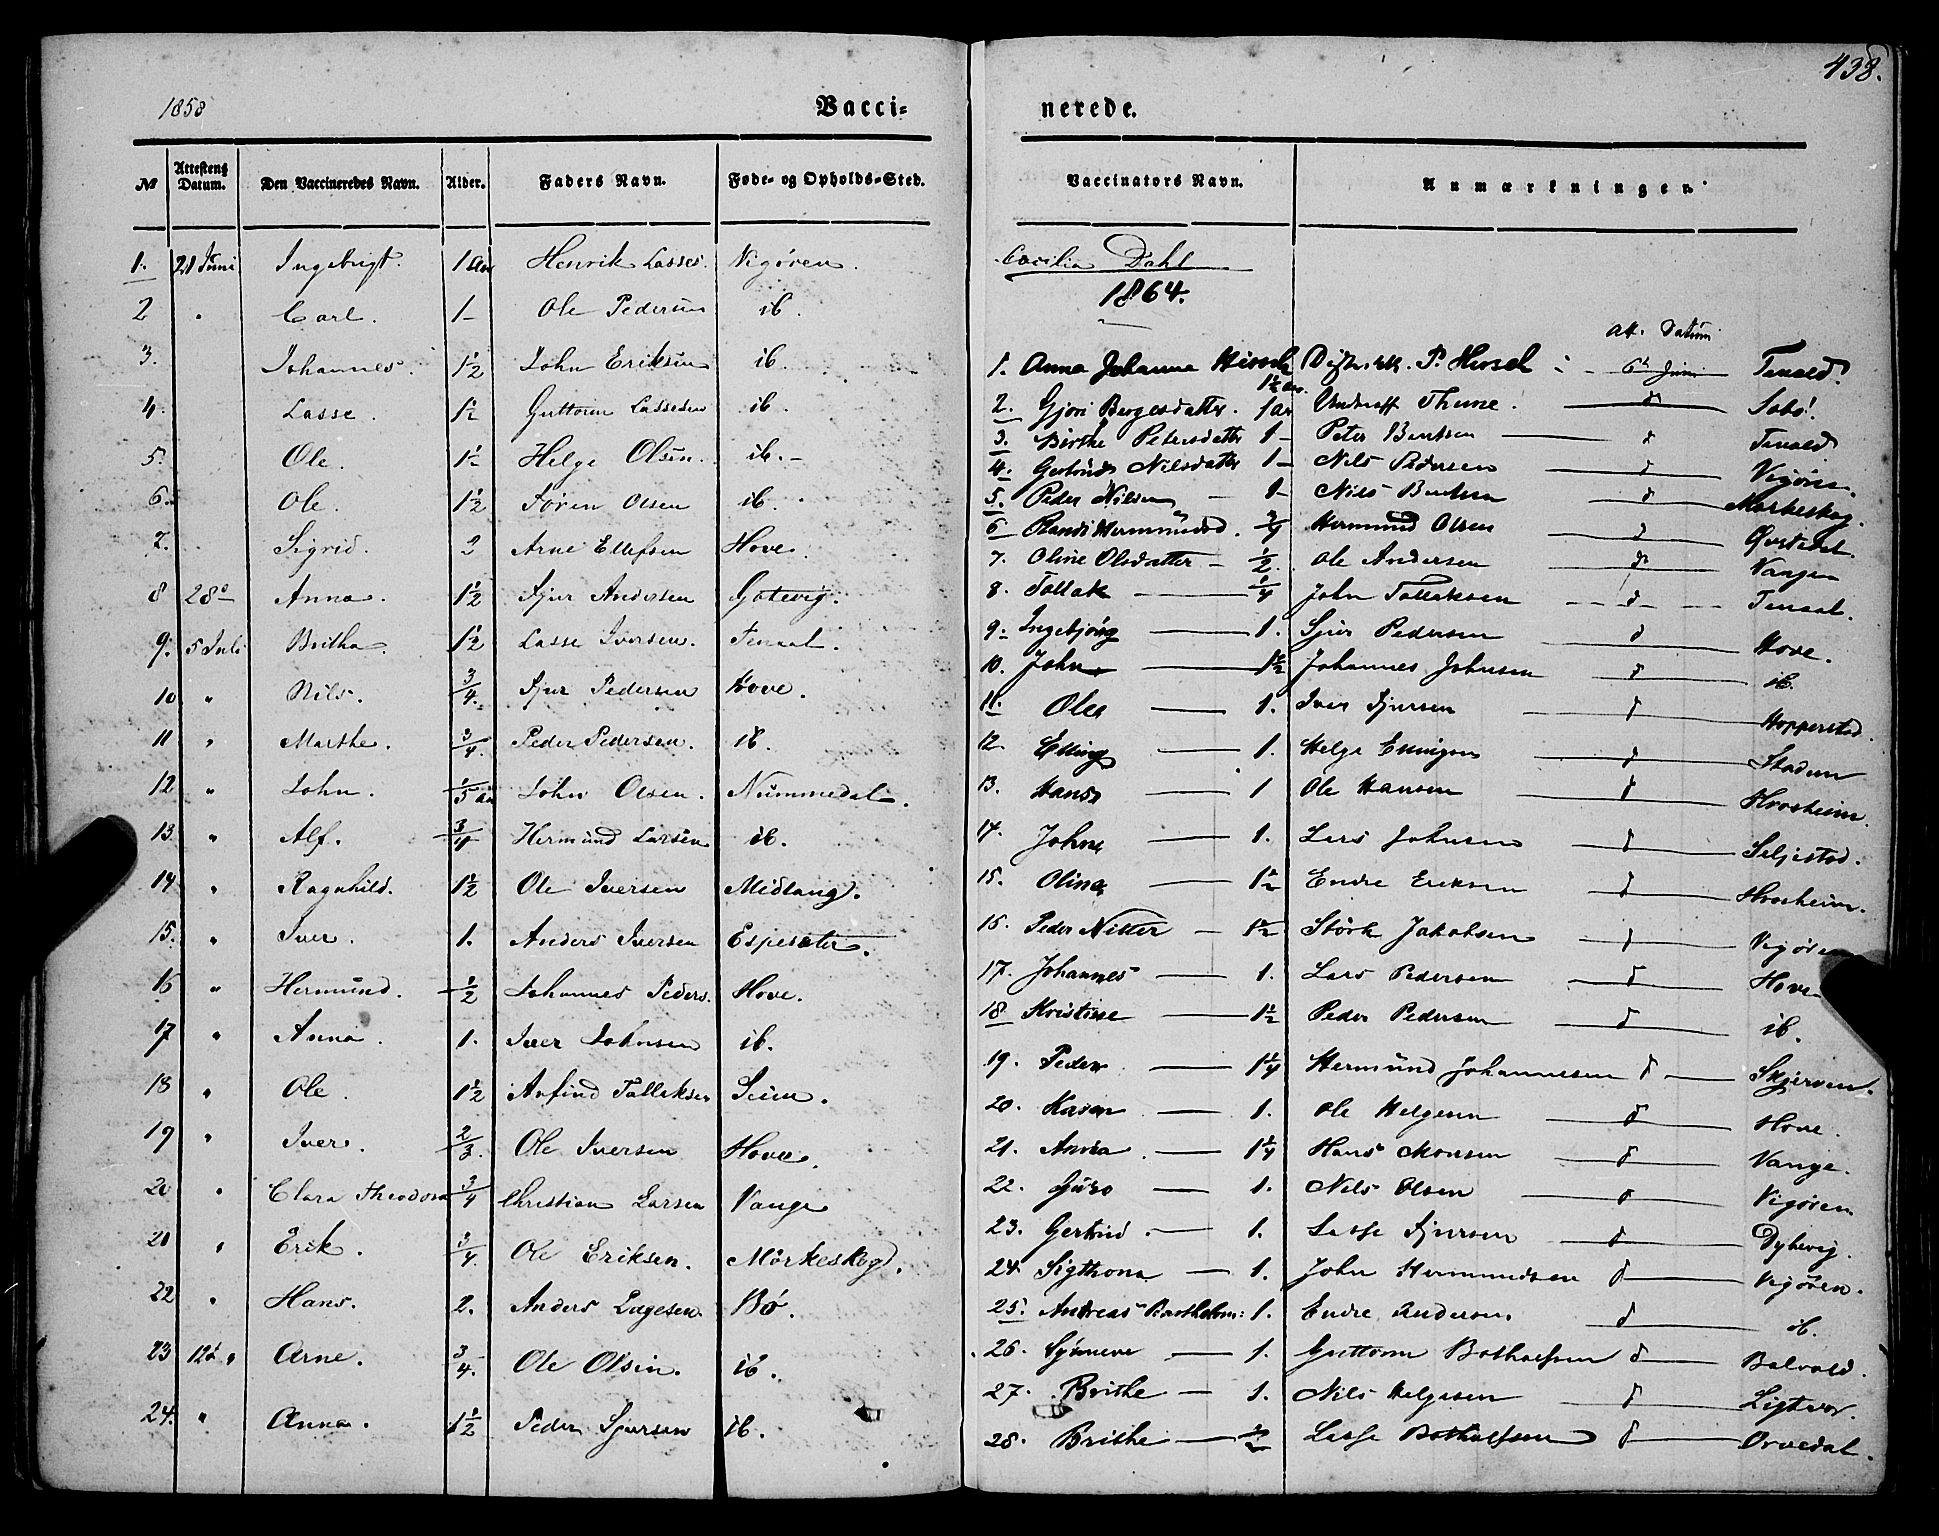 438.
1858 Vacci= nerede.
№ Attestens Datum. Den Vaccineredes Navn. Alder. Faders Navn. Føde- og Opholds-Sted.
1. 21 Juni Ingebrigt. 1 aar Henrik Lasses. Vigören.
2 " Carl. 1– Ole Pedersen ib.
3. Johannes. 1½ John Eriksen ib.
4. Lasse. 1½ Guttorm Lassesen ib.
5. Ole. 1½ Helge Olsen. ib.–
6. Ole. 1½ Sören Olsen ib.
7. Sigrid. 2 Arne Ellefsen Hove.
8 28d Anna. 1½ Sjur Andersen Gotevig.
9. 5 Juli Britha. 1½ Lasse Iversen. Tenaal.
10 " Nils. ¾. Sjur Pedersen Hove.
11 " Marthe. ¾. Peder Pedersen. ib.
12 " John. 1/5 aar John Olsen. Nummedal.
13. " Alf. ¾ Hermund Larsen ib.
14 " Ragnhild. 1½ Ole Iversen Midlang.
15. " Iver. 1. Anders Iversen Espesæter.
16 " Hermund. ½ Johannes Peders. Hove.
17 " Anna. 1. Iver Johnsen ib.
18 " Ole. 1½ Anfind Tolleksen Seim.
19 " Iver. 2/3. Ole Iversen Hove.
20 " Clara Theodora ¾ Christian Larsen Vange
21 " Erik. ¾. Ole Eriksen. Mörkeskog.
22 " Hans. 2. Anders Lagesen. Bö.
23 12d " Arne. ¾. Ole Olsin. ib.
24. " Anna. 1½ Peder Sjursen ib.
Vaccinators Navn. Anmærkninger.
Cæcilia Dahl
1864.
Att. Datum
1. Anna Johanna Hirsch 1½ aar. P. Hirsch 6te Juni Tenald.
2. Gjöri Børgesdatter. 1 ar Thune. d
3. Birthe Petersdatter 1– Peter Bentsen d Tenald
4. Gertrud Nilsdatter 1– Nils Pedersen d Vigören.
5. Peder Nilsen – 1– Nils Bentsen d Mørkeskog.
6 Randi Hermundsd. ¾ Hermund Olsen d
7. Oline Olsdatter – ½. Ole Andersen d Vangen
8. Tollak ¼ John Tollaksen d Tenaal.
9. Ingebjörg 1. Sjur Pedersen d Hove.
10. John 1½ Johannes Johnsen d ib.
11. Ole 1. Iver Sjursen d Hopperstad.
12. Elling 1. Helge Ellingsen d Stadum
13. Hans 1 Ole Hansen d Hrosheim.
14. Johne 1. Lars Johnsen d Seljestad.
15. Olina 1½ Endre Eriksen d Hrosheim.
16. Peder Nitter – 1½ Störk Jakobsen d Vigören
17. Johannes 1. Lars Pedersen d Hove
18 Kristine 1½ Peder Pedersen d ib.
19. Peder 1¼ Hermund Johannesen d Skjerven.
20. Karen 1. Ole Helgesen d Hove.
21. Anna 1¼ Hans Monsen d Vange.
22. Guro 1. Nils Olsen d Vigören
23. Gertrud. 1. Lasse Sjursen d Dyhevig.
24. Sigthona 1. John Hermundsen d Vigören.
25. Andreas Bartholom: 1. Endre Andersen. d ib.
26. Synneve 1. Guttorm Botholfsen d Bolvald.
27. Brithe – 1. Nils Helgesen d Ligtvor.
28. Brithe Lasse Botholfsen d Orvedal.